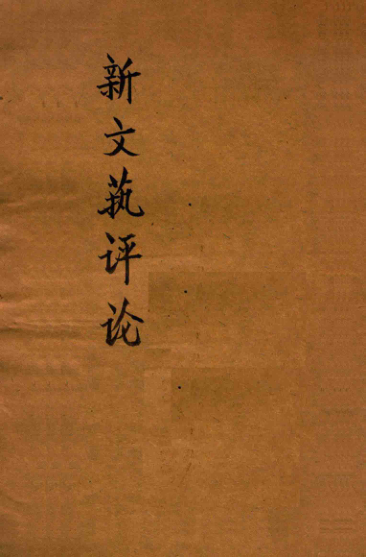 新文萟评论